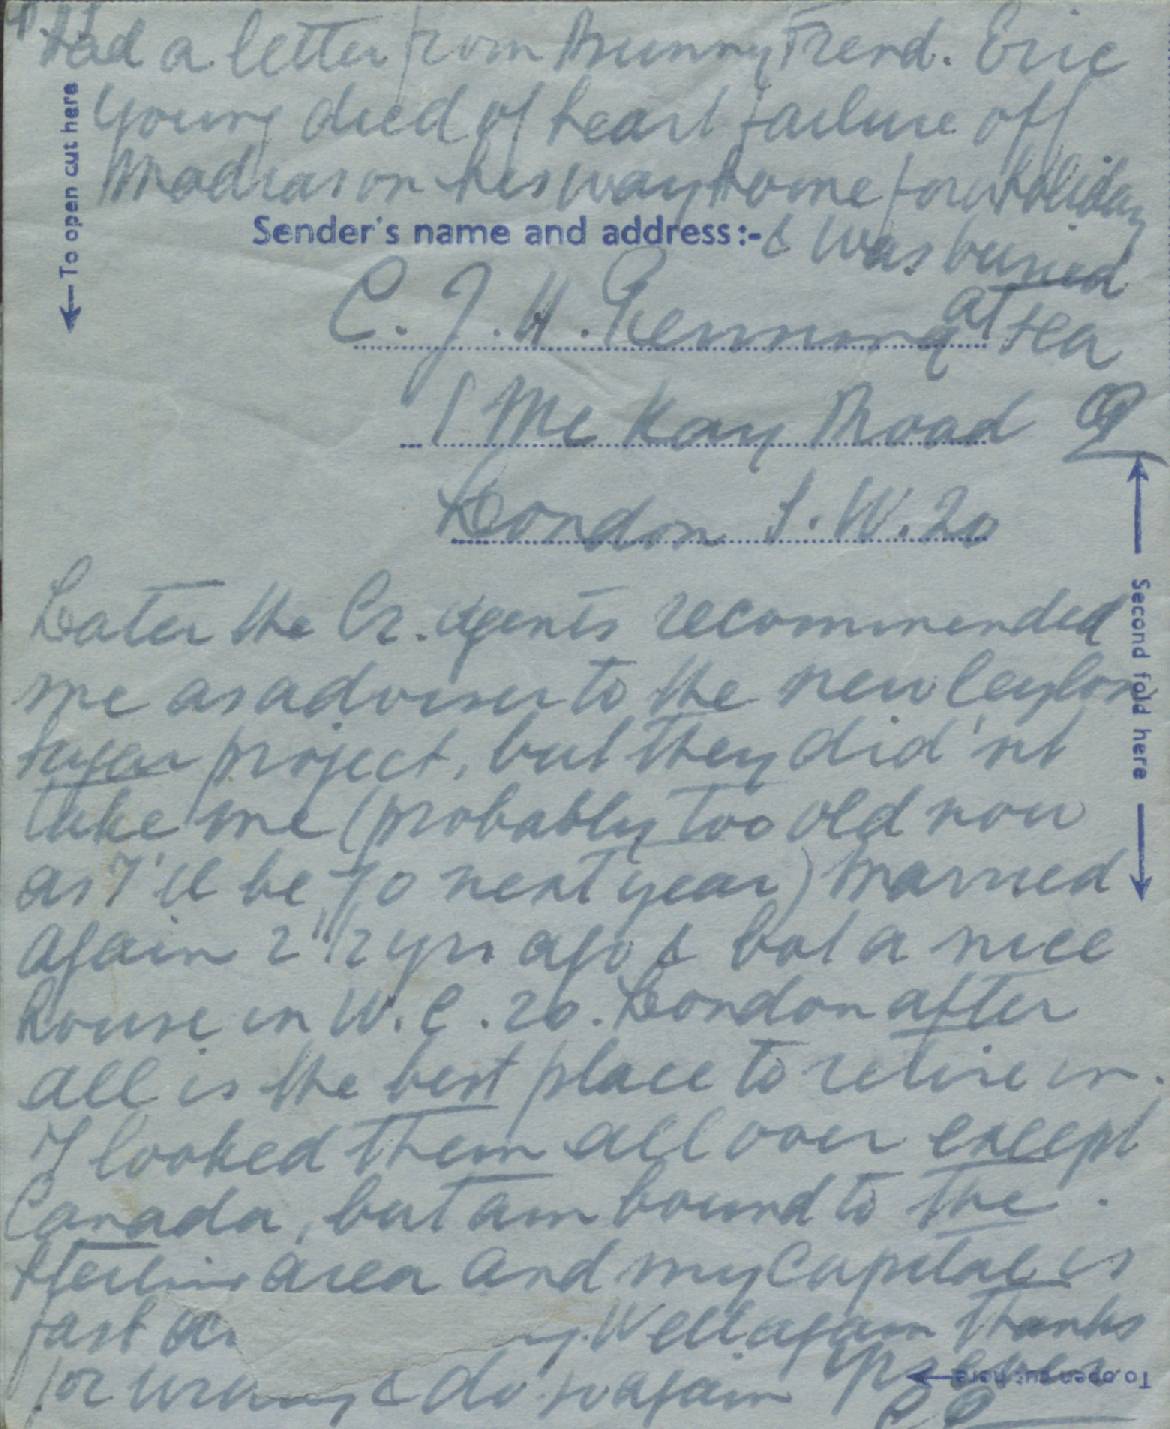 Had a letter from Bunny Trend. Eric
Young died of heart failure off
Madras on his way home for a holiday
& was buried
at sea
← To open cut here
Sender's name and address:-
C. J. H. Penning
1 McKay Road
London S.W.20
Second fold here
Later the Cr. Agents recommended
me as adviser to the new Ceylon
sugar project, but they did'nt
take me (probably too old now
as I'll be 70 next year) Married
again 2 1/2 yrs ago & bot a nice
house in W.C.20. London after
all is the best place to retire in.
I looked them all over except
Canada, but am bound to the
sterling area and my capital is
fast
Well again thanks
for & do so again
To open cut here